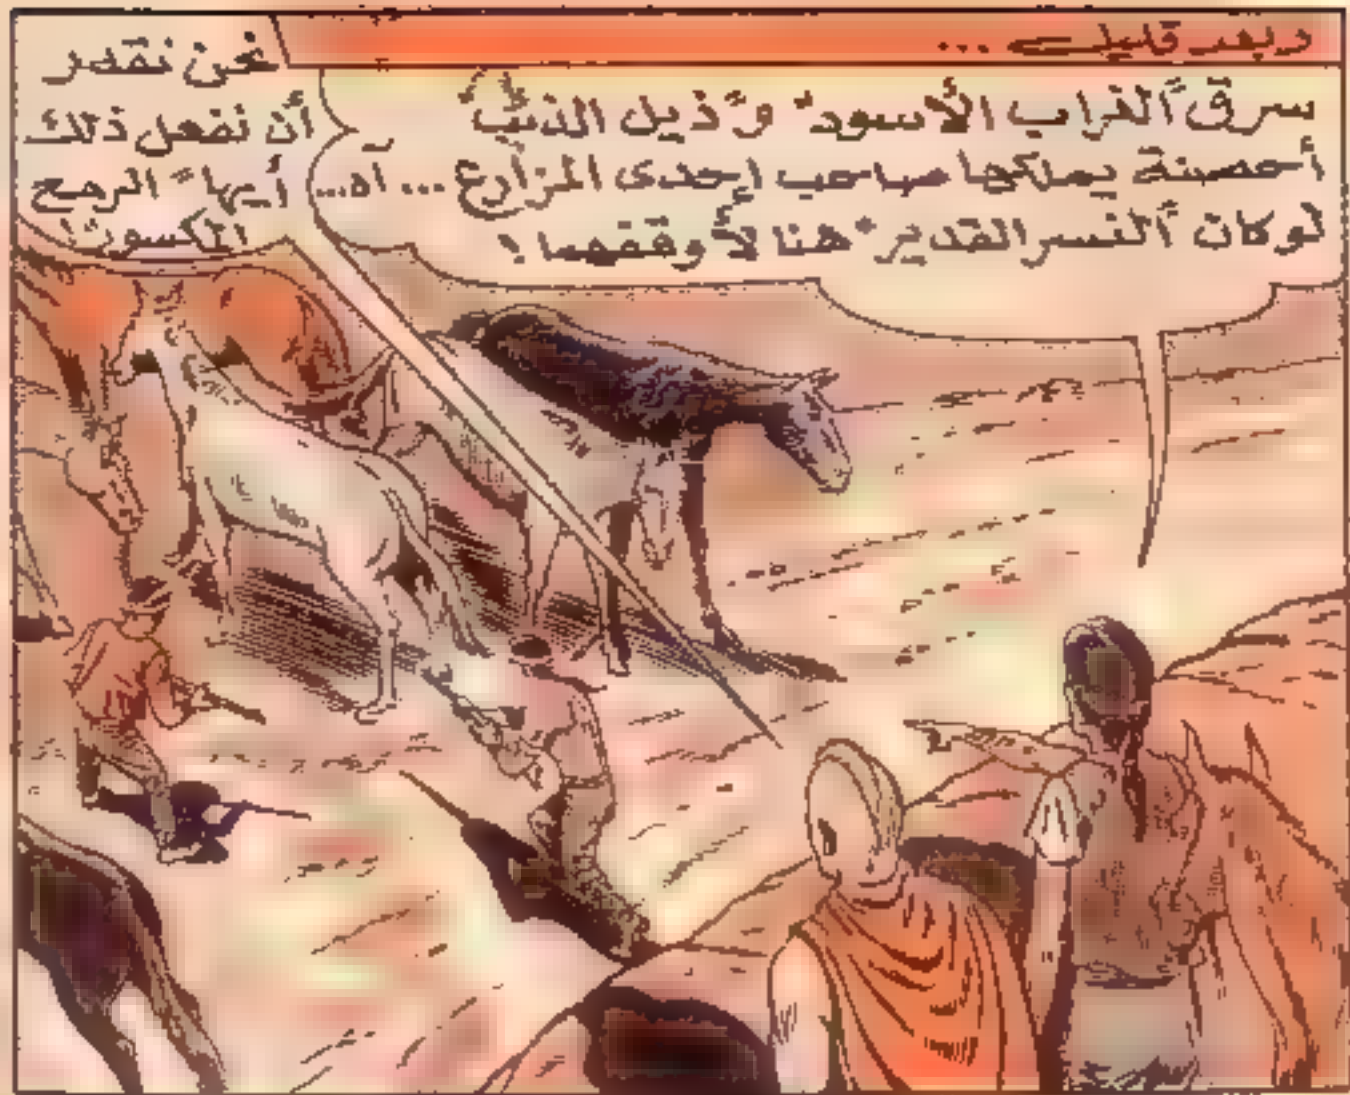 وبعد قليل ...
سرق "الغراب الأسود" و"ذيل الذئب"
أحصنة يملكها صاحب إحدى المزارع ... آه...
لو كان "النسر القدير" هنا لأوقفهما !
نحن نقدر
أن نفعل ذلك
أيها "الرمح
المكسور"!